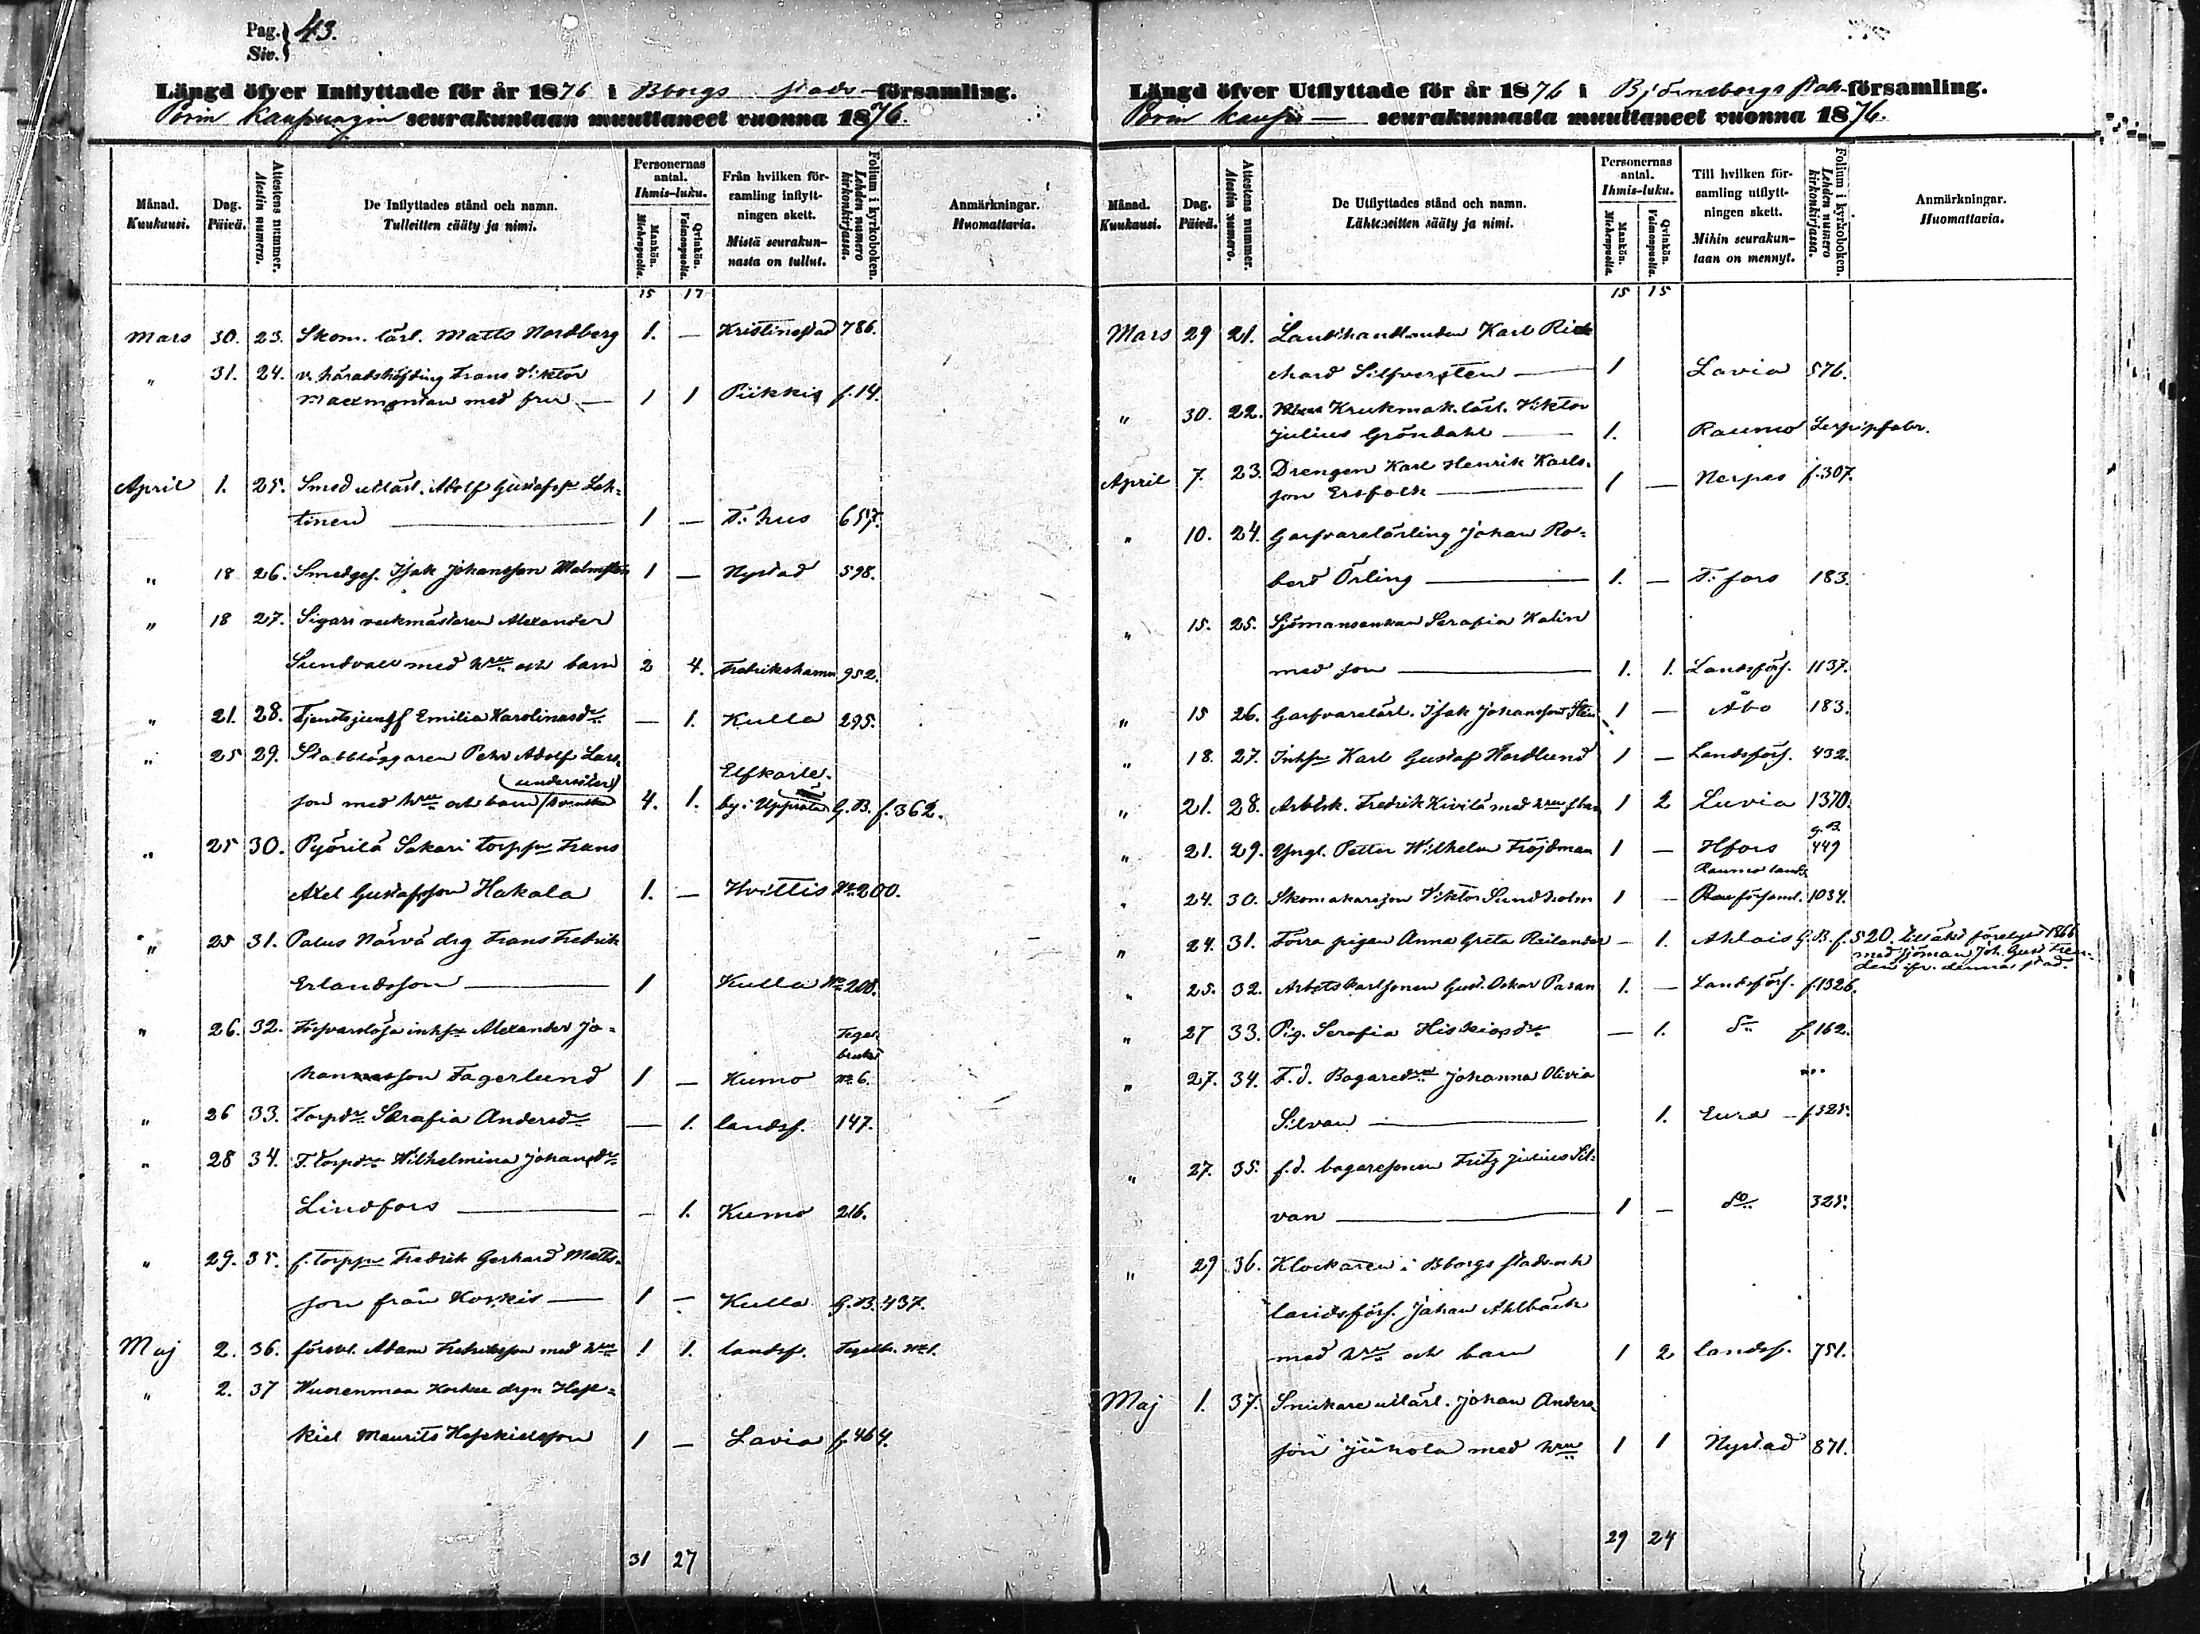 Pag. 43.
Siv.
Längd öfver Inflyttade för år 1876 i Bborgs stads församling.
Porin kaupungin seurakuntaan muuttaneet vuonna 1876.
Månad. Kuukausi.
Dag. Päivä.
Attestens nummer. Atestin numero.
De Inflyttades stånd och namn. Tulleitten sääty ja nimi.
Personernas antal. Ihmis-luku.
Mankön. Miehenpuolia.
Qvinkön. Vaimonpuolia.
Från hvilken församling inflyttningen skett. Mistä seurakunnasta on tullut.
Folium i kyrkoboken. Lehden numero kirkonkirjassa.
Anmärkningar. Huomattavia.
15 17
Mars 30. 23. Skom. lärl. Matts Nordberg 1. — Kristinestad 786.
" 31. 24. v. häradshöfding Frans Viktor
Maexmontan med fru — 1 1 Piikkis f. 14.
April 1. 25. Smed utlärl. Adolf Gustafss. Leh-
tinen — 1 — T:hus 657.
" 18 26. Smedges. Isak Johansson Malmsten 1 — Nystad 598.
" 18 27. Sigarr verkmästaren Alexander
Sundvall med hru och barn 2 4. Fredrikshamn 952.
" 21. 28. Tjenstejungf Emilia Karolinasdr — 1. Kulla 295.
" 25 29. Stabbläggaren Pehr Adolf Lars-
(undersåter)
son med hru och barn (svenska 4. 1. Elfkarle-
by i Uppsala G.B. f. 362.
" 25 30. Pyörilä Sakari torppn Frans
Axel Gustafsson Hakala 1. — Hvittis No 200.
" 25 31. Palus Närvä drg Frans Fredrik
Erlandsson — 1 Kulla No 208.
" 26. 32. Försvarslöse inhsn Alexander Jo-
hannesson Fagerlund 1 — Kumo Tegelbruket No 6.
" 26 33. Torpdr Serafia Andersdr — 1. landsf. 147.
" 28 34. F. torpdr Wilhelmina Johansdr
Lindfors — — 1. Kumo 216.
" 29. 35. f. torppn Fredrik Gerhard Matts-
son från Korkis — 1 — Kulla G.B. 437.
Maj 2. 36. försvl. Adam Fredriksson med hru 1 1. landsf. Tegelbr. No 1.
" 2. 37 Wuorenmaa Korkee drgn Hese-
kiel Maurits Hesekielsson 1 — Lavia f. 464.
31 27
Längd öfver Utflyttade för år 1876 i Björneborgs stads församling.
Porin kaup — seurakunnasta muuttaneet vuonna 1876.
Månad. Kuukausi.
Dag. Päivä.
Attestens nummer. Atestin numero.
De Utflyttades stånd och namn. Lähteneitten sääty ja nimi.
Personernas antal. Ihmis-luku.
Mankön. Miehenpuolia.
Qvinkön. Vaimonpuolia.
Till hvilken församling utflyttningen skett. Mihin seurakuntaan on mennyt.
Folium i kyrkoboken. Lehden numero kirkonkirjassa.
Anmärkningar. Huomattavia.
15 15
Mars 29 21. Landthandlanden Karl Rick-
chard Silfversten — 1 Lavia 576.
" 30. 22. Krukmak. lärl. Viktor
Julius Gröndahl — 1. Raumo Lerpipfabr.
April 7. 23. Drengen Karl Henrik Karls-
son Ersfolk — 1 — Nerpes f. 307.
" 10. 24. Garfvarelärling Johan Ro-
bert Örling — 1. — T:fors 183.
" 15. 25. Sjömansenkan Serafia Kalin
med son — 1. 1. Landsförs. 1137.
" 15 26. Garfvarelärl. Isak Johansson Sten 1 — Åbo 183.
" 18. 27. Inhsn Karl Gustaf Nordlund 1 — Landsförs. 432.
" 21. 28. Arbtsk. Fredrik Kivilä med hru o barn 1 2 Luvia 1370.
" 21. 29. Yngl. Petter Wilhelm Fröjdman 1 — Hfors G.B. 449
" 24. 30. Skomakareson Viktor Sundholm 1 — Raumo lands
församl. 1034.
" 24. 31. Förra pigan Anna Greta Reilander — 1. Ahlais G.B. f. 520. 1866
med sjöman Joh. Gust.
denna stad.
" 25. 32. Arbetskarlsonen Gust. Oskar Pasan 1. — Landsförs. f. 1326.
" 27 33. Pig. Serafia Hiskiasdr — 1. do f. 162.
" 27. 34. F.d. Bagaredr Johanna Olivia
Silvan — 1. Eura — f 325.
" 27. 35. f.d. bagaresonen Fritz Julius Sil-
van — 1 — do 325.
" 29 36. Klockaren i Bborgs stads och
landsförs. Johan Ahlbäck
med hru och barn 1 2 landsf. 751.
Maj 1. 37. Snickare utlärl. Johan Anders-
son Juhola med hru 1 1 Nystad 871.
29 24